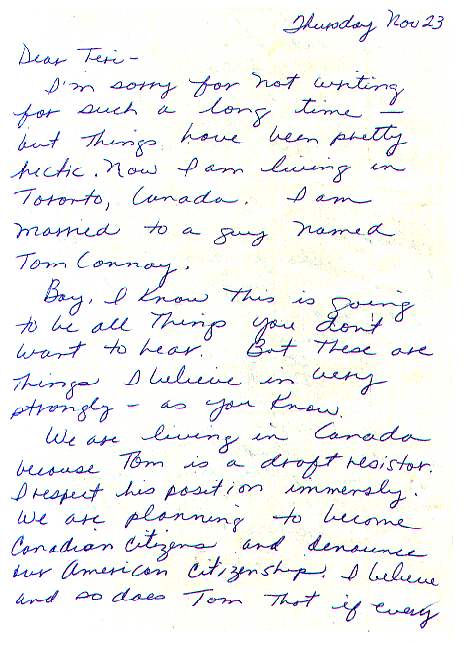 Thursday Nov 23
Dear Teri-
I'm sorry for not writing
for such a long time —
but things have been pretty
hectic. Now I am living in
Toronto, Canada. I am
married to a guy named
Tom Connoy.
Boy, I know this is going
to be all things you don't
want to hear. But these are
things I believe in very
strongly - as you know.
We are living in Canada
because Tom is a draft resistor.
I respect his position immensly.
We are planning to become
Canadian Citizens and denounce
our American citizenship. I believe
and so does Tom that if every